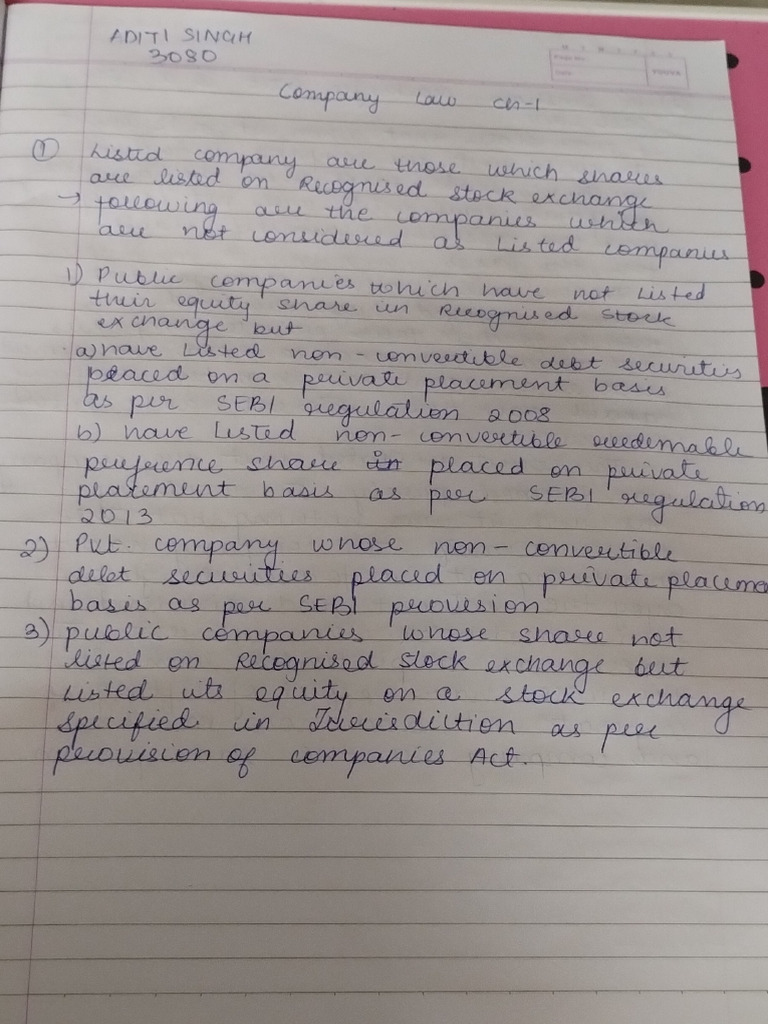 ADITI SINGH
3080
Company Law Ch-1
① Listed company are those which shares
are listed on Recognised stock exchange
→ following are the companies which
are not considered as Listed companies
1) Public companies which have not Listed
their equity share in Recognised stock
exchange but
a) have Listed non-convertible debt securities
placed on a private placement basis
as per SEBI regulation 2008
b) have Listed non-convertible redemable
preference share in placed on private
placement basis as per SEBI regulation
2013
2) Pvt. company whose non-convertible
debt securities placed on private placemen
basis as per SEBI provision
3) public companies whose share not
listed on Recognised stock exchange but
Listed its equity on a stock exchange
specified in Jurisdiction as per
provision of companies Act.